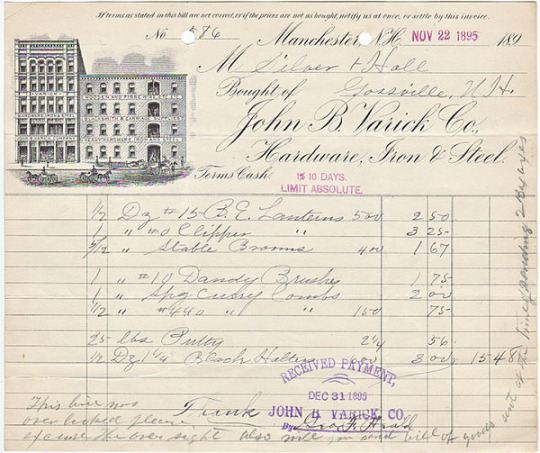 If terms as stated in this bill are not correct, or if the prices are not as bought, notify us at once, or settle by this invoice.
No 586 Manchester, N.H. NOV 22 1895 189
M Silver & Hall
Bought of Gossville, N.H.
John B. Varick Co.,
Hardware, Iron & Steel.
Terms Cash. 10 DAYS.
LIMIT ABSOLUTE.
WOODEN AND FIBRE WARE
BLACKSMITH & CARRIAGE SUPPLIES
HEAVY HARDWARE, IRON AND STEEL
1/2 Dz #15 B.E. Lanterns 5 00 2 50
1 " #0 Clipper " 3 25
5/12 " Stable Brooms 4 00 1 67
1 " #10 Dandy Brushes 1 75
1 " Spg Curry Combs 2 00
1/2 " #440 " " 1 50 75
25 lbs Putty 2 1/4 56
1/2 Dz 1 1/4 Black Halters 3 00 15 48
RECEIVED PAYMENT,
DEC 31 1895
JOHN B. VARICK CO.
By Geo. F. Heald
This bill was
overlooked please
excuse the oversight also will you send bill of goods sent at the time, 2 axes
Thank